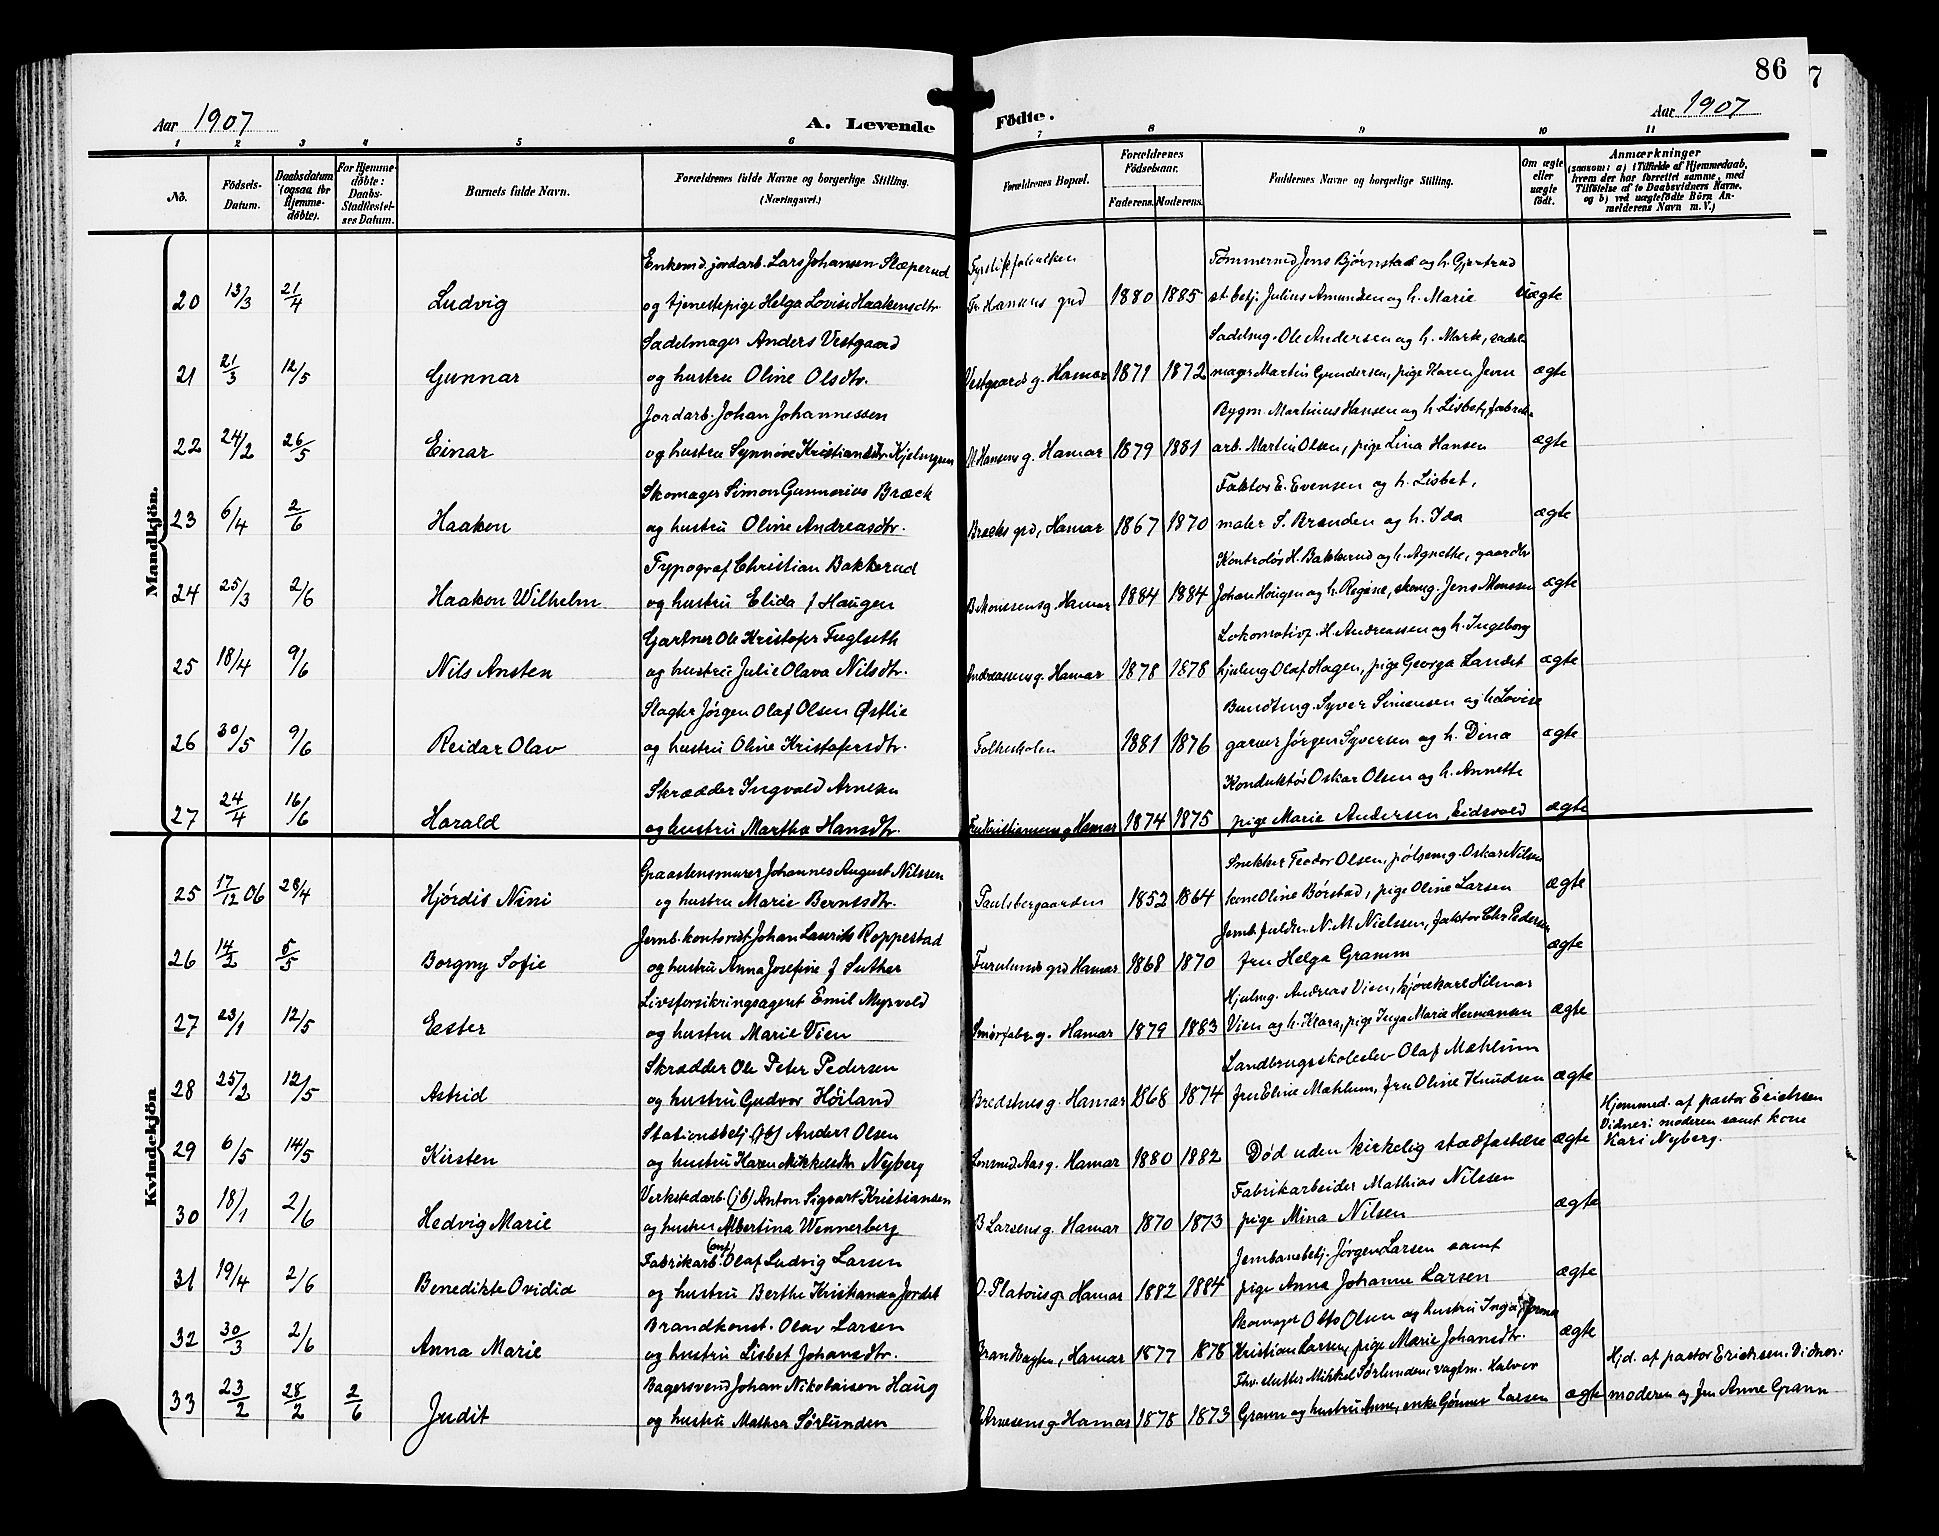 86
7
Aar 1907
A. Levende Födte.
Aar 1907
1 2 3 4 5 6 7 8 9 10 11
No.
Födsels-Datum.
Daabsdatum (ogsaa for Hjemme-döbte).
For Hjemme-döbte: Daabs-Stadfæstel-ses Datum.
Barnets fulde Navn.
Forældrenes fulde Navne og borgerlige Stilling. (Næringsvei.)
Forældrenes Bopæl.
Forældrenes Födselsaar.
Faderens. Moderens.
Faddernes Navne og borgerlige Stilling.
Om ægte eller uægte födt.
Anmærkninger
(saasom: a) i Tilfælde af Hjemmedaab, hvem der har forrettet samme, med Tilföielse af to Daabsvidners Navne, og b) ved uægtefödte Börn An-melderens Navn m. V.)
Mandkjön.
Enkemd. jordarb. Lars Johansen Slæperud Tømmermd Jens Bjørnstad og h. Gjertrud
20 13/3 21/4 Ludvig og tjenestepige Helga Lovise Haakensdtr. Fr. Hansens grd 1880 1885 st. betj. Julius Amundsen og h. Marie Uægte
Sadelmager Anders Vestgaard Sadelmg. Ole Andersen og h. Marte, sadel-
21 21/3 12/5 Gunnar og hustru Oline Olsdtr. Vestgaards g. Hamar 1871 1872 mager Martin Gundersen, pige Karen Jevn ægte
Jordarb. Johan Johannessen Bygm. Martinus Hansen og h. Lisbet, fabrik-
22 24/2 26/5 Einar og hustru Synnøve Kristiansdtr. Kjelmgren M Hansens g. Hamar 1879 1881 arb. Martin Olsen, pige Lina Hansen ægte
Skomager Simon Gunnerius Bræck Faktor E. Evensen og h. Lisbet,
23 6/4 2/6 Haakon og hustru Oline Andreasdtr. Bræcks grd, Hamar 1867 1870 maler S. Brenden og h. Ida ægte
Typograf Christian Bakkerud Kontrolør H. Bakkerud og h. Agnethe, gaardbr
24 25/3 2/6 Haakon Wilhelm og hustru Elida f Haugen B Monssens g. Hamar 1884 1884 Johan Haugen og h. Regine, skomg. Jens Monssen ægte
Gartner Ole Kristofer Fuglseth Lokomotivf. H. Andreassen og h. Ingeborg
25 18/4 9/6 Nils Ansten og hustru Julie Olava Nilsdtr. Andreassens g. Hamar 1878 1878 hjulmg Olaf Hagen, pige Georga Landet ægte
Slagter Jørgen Olaf Olsen Østlie Bundtmg. Syver Simensen og h Lovise
26 30/5 9/6 Reidar Olav og hustru Oline Kristofersdtr. 1881 1876 garver Jørgen Syversen og h. Dina ægte
Skrædder Ingvald Arnesen Konduktør Oskar Olsen og h. Annette
27 24/4 16/6 Harald og hustru Marthe Hansdtr. Fru Kristiansens g Hamar 1874 1875 pige Marie Andersen, Eidsvold ægte
Kvindekjön
Graastensmurer Johannes August Nilssen Snekker Teodor Olsen, pølsemg. Oskar Nilsen
25 17/12 06 28/4 Hjørdis Nini og hustru Marie Berntsdtr. Paulsbergaarden 1852 1864 kone Oline Børstad, pige Oline Larsen ægte
Jernb. kontorist Johan Laurits Roppestad Jernb. fuldm. N. M Nielssen, faktor Chr Pedersen
26 14/2 5/5 Borgny Sofie og hustru Anna Josefine f Suther Furulunds grd Hamar 1868 1870 fru Helga Gramm ægte
Livsforsikringsagent Emil Myrvold Hjulmg. Andreas Vien, kjørekarl Hilmar
27 23/1 12/5 Ester og hustru Marie Vien Smørfabr g. Hamar 1879 1883 Vien og h. Klara, pige Inga Marie Hermansen ægte
Skrædder Ole Peter Pedersen Landbrugsskoleelev Olaf Mæhlum
28 25/2 12/5 Astrid og hustru Gudvor Høiland Bredstues g. Hamar 1868 1874 fru Eline Mæhlum, fru Oline Knudsen ægte
Stationsbetj. (jb) Anders Olsen Hjemmed. af pastor Erichsen
29 6/5 14/5 Kirsten og hustru Karen Mikkelsdtr Nyberg Lensmd Aas g. Hamar 1880 1882 Død uden kirkelig stadfæstelse ægte Vidner: moderen samt kone Kari Nyberg.
Verkstedarb. (jb) Anton Sigvart Kristiansen Fabrikarbeider Mathias Nilssen
30 18/1 2/6 Hedvig Marie og hustru Albertina Wennerberg B Larsens g. Hamar 1870 1873 pige Mina Nilsen ægte
Fabrikarb. Olaf Ludvig Larsen Jernbanebetj. Jørgen Larsen samt
31 19/4 2/6 Benedikte Ovidid og hustru Berthe Kristiansen Jordet O. Platous g. Hamar 1882 1884 pige Anna Johanne Larsen ægte
Brandkonst. Olav Larsen Skomager Otto Olsen og hustru Inga,
32 30/3 2/6 Anna Marie og hustru Lisbet Johansdtr. Brandvagten, Hamar 1877 1878 Kristian Larsen, pige Marie Johansdtr. ægte
Bagersvend Johan Nikolaisen Haug Fhv. slutter Mikkel Sørlunden, vagtm. Halvor Hjd. af pastor Erichsen. Vidner:
33 23/2 28/2 2/6 Judit og hustru Mathea Sørlunden Arnesens g. Hamar 1878 1873 Grann og hustru Anne, enke Gunner Larsen ægte moderen og fru Anne Grann